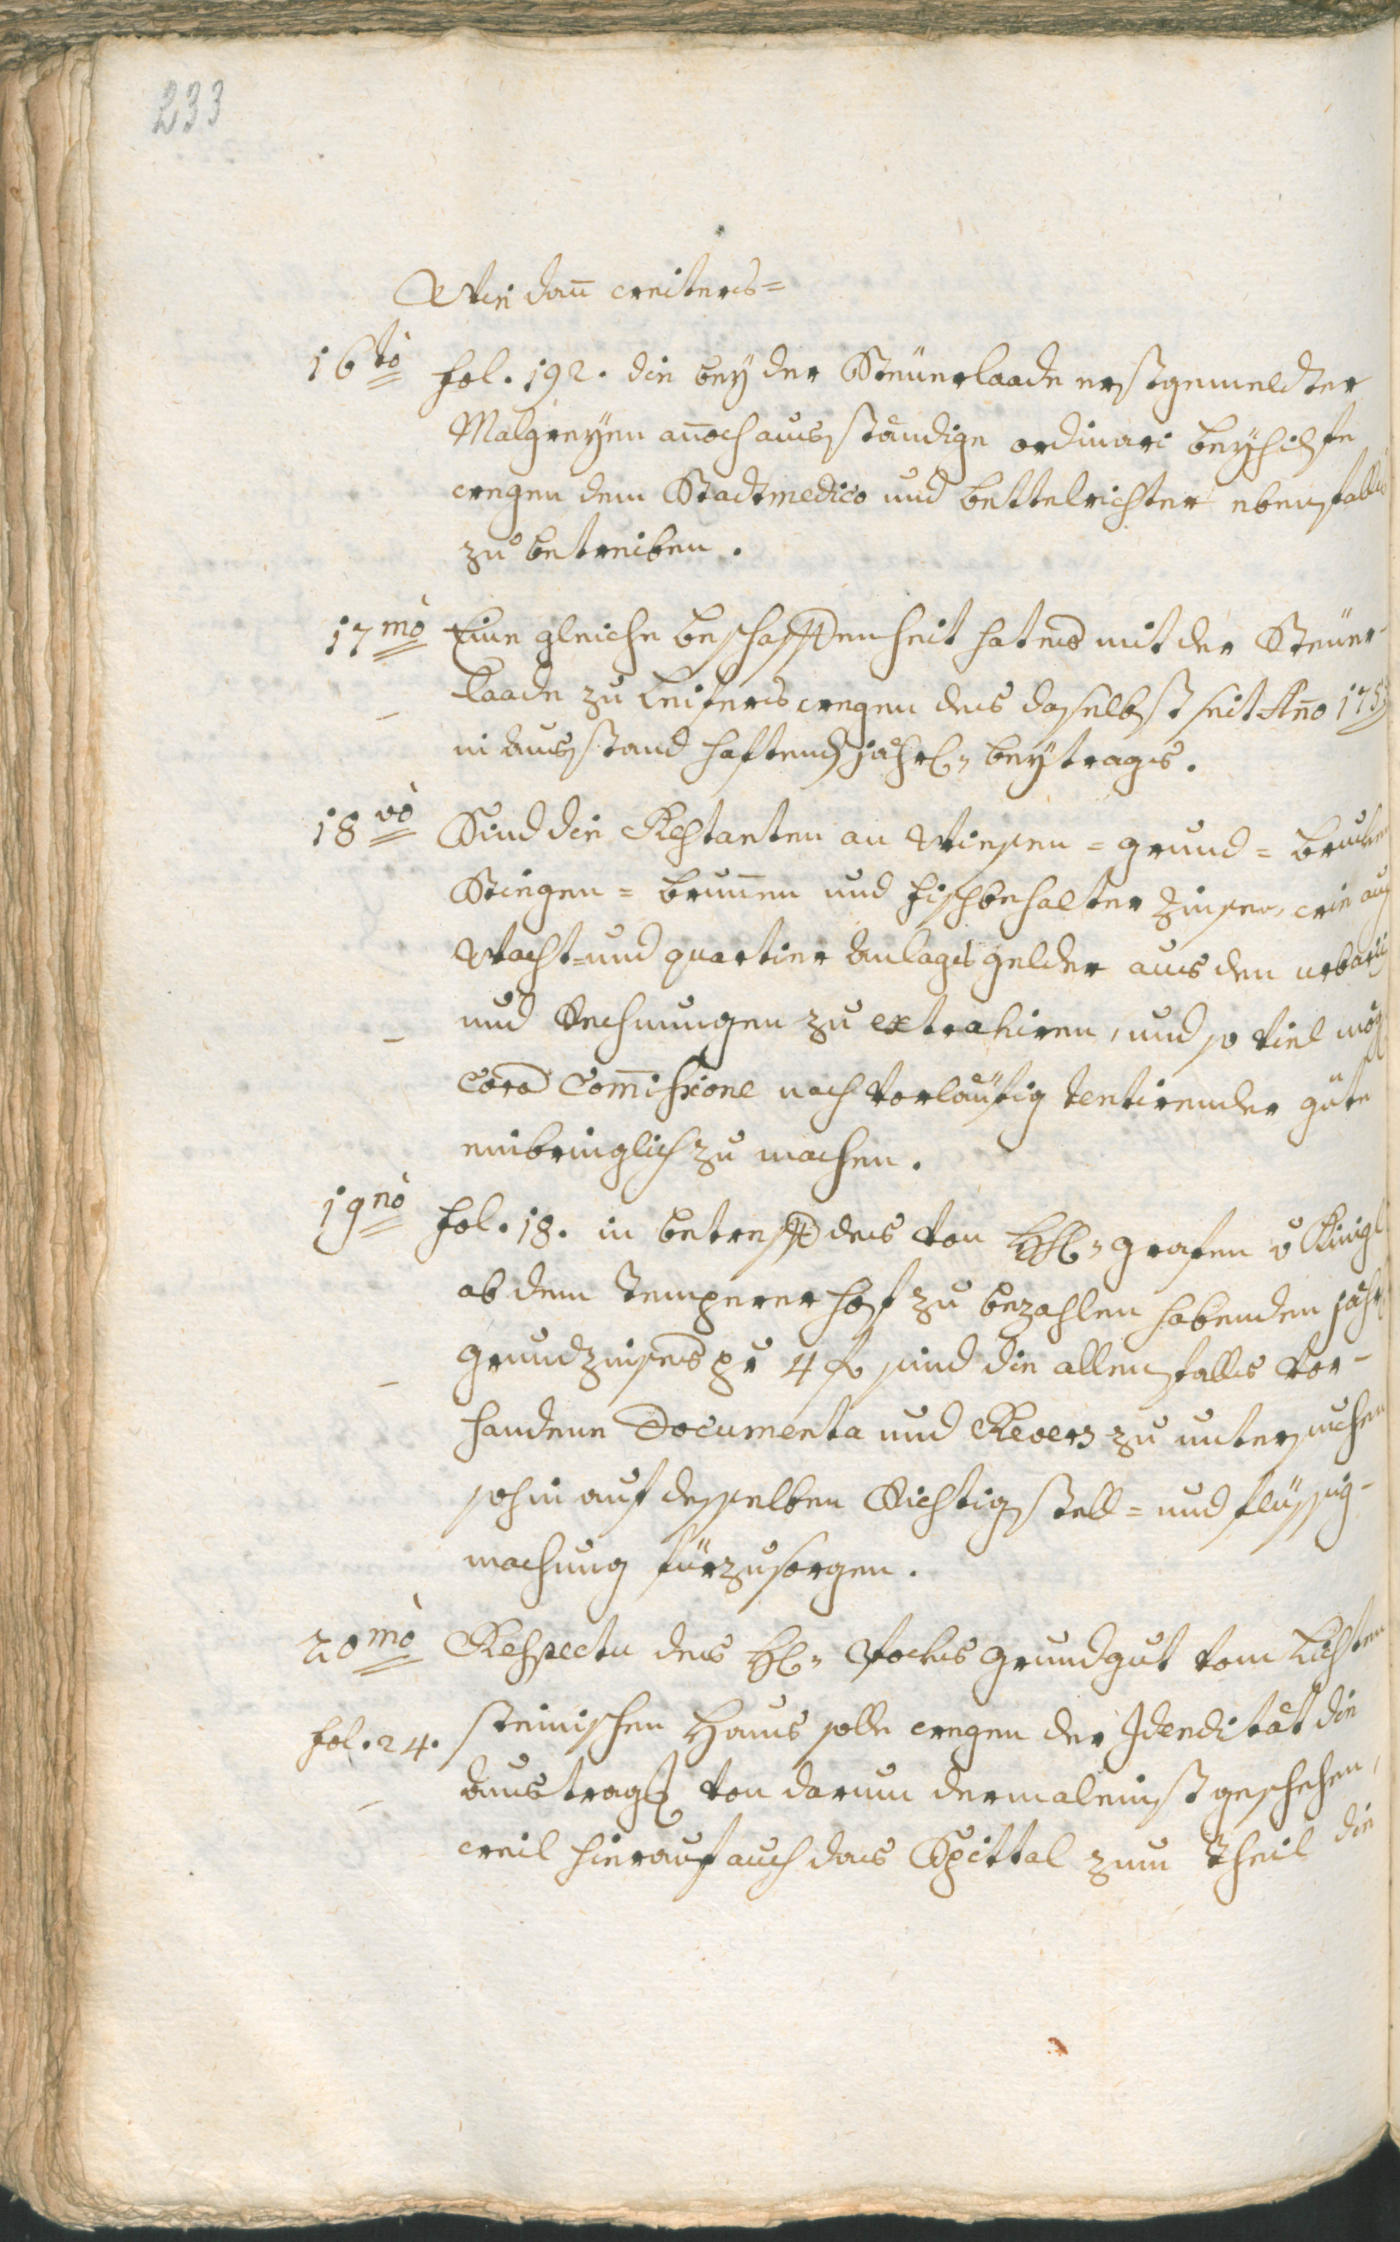 233
Wie dan̄ weiters=
16tò fol. 192. die bey der Steüerlaade erstgemeldter
Malgreyen an̄och ausständige ordinari beyhilfe
wegen dem Stadtmedico und bettelrichter ebenfalls
zu betreiben.
17mò Eine gleiche beschaffenheit hat es mit der Steüer-
laade zu Leifers wegen des daselbst seit An̄o 175
in ausstand haftend jährl. beytrags.
18vò Sind die Restanten an Wiesen= grund= brucken
Stiegen= brun̄en und fischbehalter Zinsen, wie auch
Wacht= und quartier anlags gelder aus den urbarien
und Rechnungen zu extrahiren, und so viel mögl
Corā Com̄issione nach vorläufig tentirender güte
einbringlich zu machen.
19nò fol. 18. in betreff des von H. grafen v Künigl
ab dem Temperer hof zu bezahlen habenden jährl
grundzinses pr 4 f sind die allenfalls vor-
handene Documenta und Revers zu untersuchen
sohin auf desselben Richtigstell= und flüssig-
machung fürzusorgen.
20mò Respectu des H. Vockis grundgut vom Liechten
fol. 24. steinischen Haus solle wegen der Idendität die
austrag von darum dermaleinst geschehen,
weil hierauf auch das Spittal zum Theil die